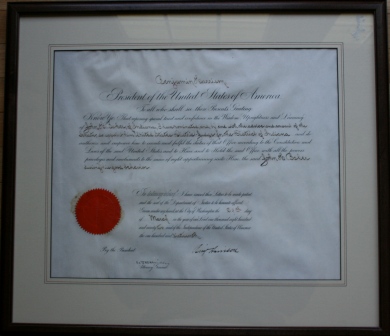 Benjamin Harrison
President of the United States of America
To all who shall see these Presents, Greeting:
Know Ye, That reposing special trust and confidence in the Wisdom, Uprightness and Learning
of John H. Baker of Indiana I have nominated and by and with the advice and consent of the
Senate do appoint him United States District Judge for the District of Indiana and do
authorize and empower him to execute and fulfil the duties of that Office according to the Constitution and
Laws of the said United States; and to Have and to Hold the said Office with all the powers
privileges and emoluments to the same of right appertaining unto Him, the said John H. Baker
during
In testimony whereof, I have caused these Letters to be made patent
and the seal of the Department of Justice to be hereunto affixed.
Given under my hand at the City of Washington the day
of March in the year of our Lord one thousand eight hundred
and ninety and of the Independence of the United States of America
the one hundred and
By the President
Attorney General